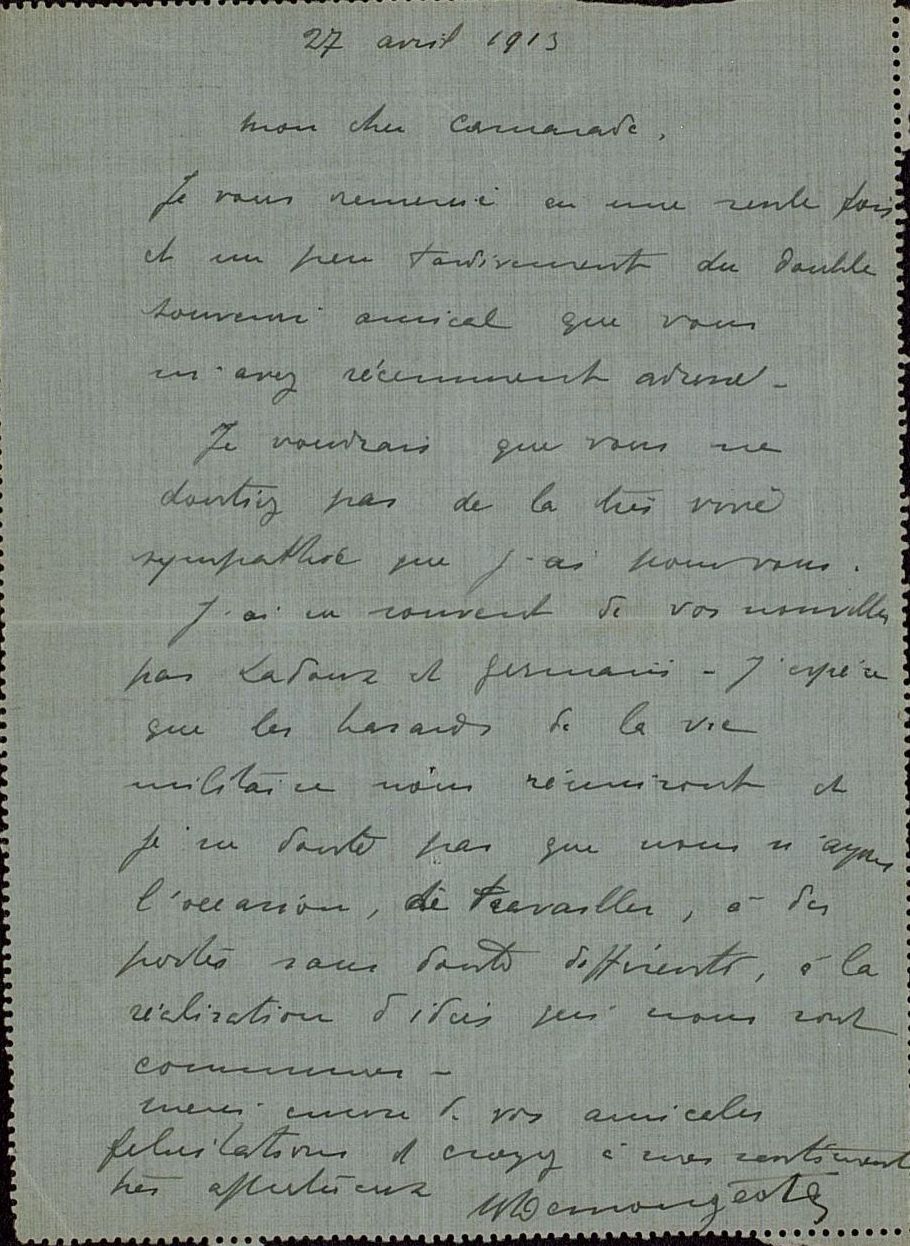 27 avril 1913
mon cher camarade,
Je vous remercie en une seule fois
et un peu tardivement du double
souvenir amical que vous
m'avez récemment adressé -
Je voudrais que vous ne
doutiez pas de la très vive
sympathie que j'ai pour vous.
J'ai eu souvent de vos nouvelles
par Ladoux et Germain - J'espère
que les hasards de la vie
militaire nous réuniront et
je ne doute pas que nous n'ayons
l'occasion, de travailler, à des
postes sans doute différents, à la
réalisation d'idées qui nous sont
communes -
merci encore de vos amicales
félicitations et croyez à mes sentiments
très affectueux